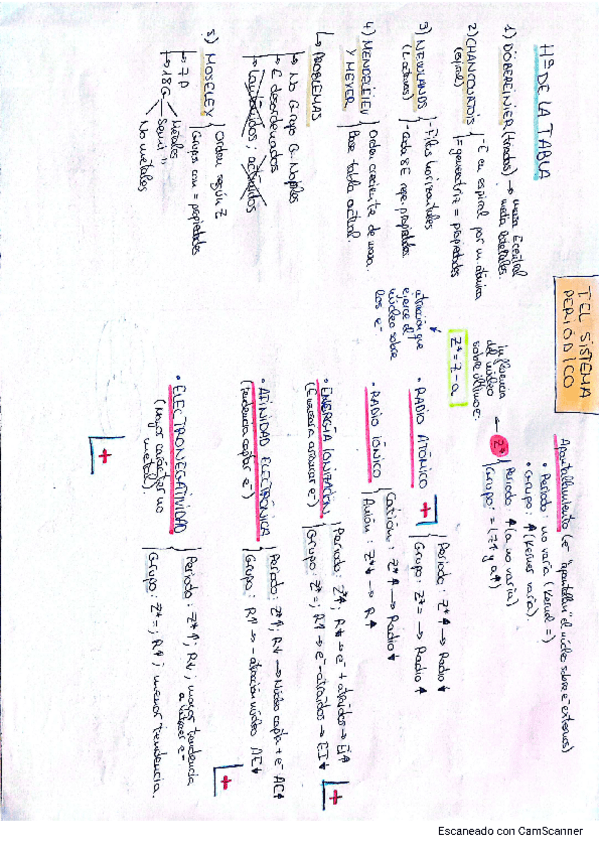 T.EL SISTEMA
PERIÓDICO
Hª DE LA TABLA
1) DÖBEREINER (triadas) → masa E central
meta laterales.
2) CHANCOURTOIS
(espiral)
- E en espiral por m. atómica
= generatriz = propiedades
3) NEWLANDS
(Octavas)
- Filas horizontales
- cada 8 E rep. propiedades
4) MENDELÉIEV
Y MEYER
Orden creciente de masa.
Base tabla actual.
↳ PROBLEMAS
→ No Grupo G. Nobles
→ E desordenados
→ Lantánidos; actínidos
5) MOSELEY
Orden según Z
Grupos con = propiedades
→ 7 P
→ 18 G
Metales
Semi "
No metales
Apantallamiento (e⁻ "apantallan" el núcleo sobre e⁻ externos)
• Periodo: no varía (Kernel =)
• Grupo: ↑ (Kernel varía).
Z*
Periodo: ↑ (a no varía)
Grupo: = (Z↑ y a↑)
influencia
del núcleo
sobre último e⁻
Z* = Z - a
atracción que
ejerce el
núcleo sobre
los e⁻
• RADIO ATÓMICO
Periodo: Z*↑ → Radio↓
Grupo: Z*= → Radio↑
+
• RADIO IÓNICO
Catión: Z*↑ → Radio↓
Anión: Z*↓ → R↑
• ENERGÍA IONIZACIÓN
(E necesaria arrancar e⁻)
Periodo: Z*↑, R↓ → e⁻ + atraídos → EI↑
Grupo: Z*=; R↑ → e⁻ - atraídos → EI↓
+
• AFINIDAD ELECTRÓNICA
(tendencia captar e⁻)
Periodo: Z*↑; R↓ → Núcleo capta + e⁻ AE↑
Grupo: R↑ → - atracción núcleo AE↓
+
• ELECTRONEGATIVIDAD
(Mayor carácter no
metal).
Periodo: Z*↑; R↓; mayor tendencia
a atraer e⁻
Grupo: Z*=; R↑; menor tendencia.
+
Escaneado con CamScanner